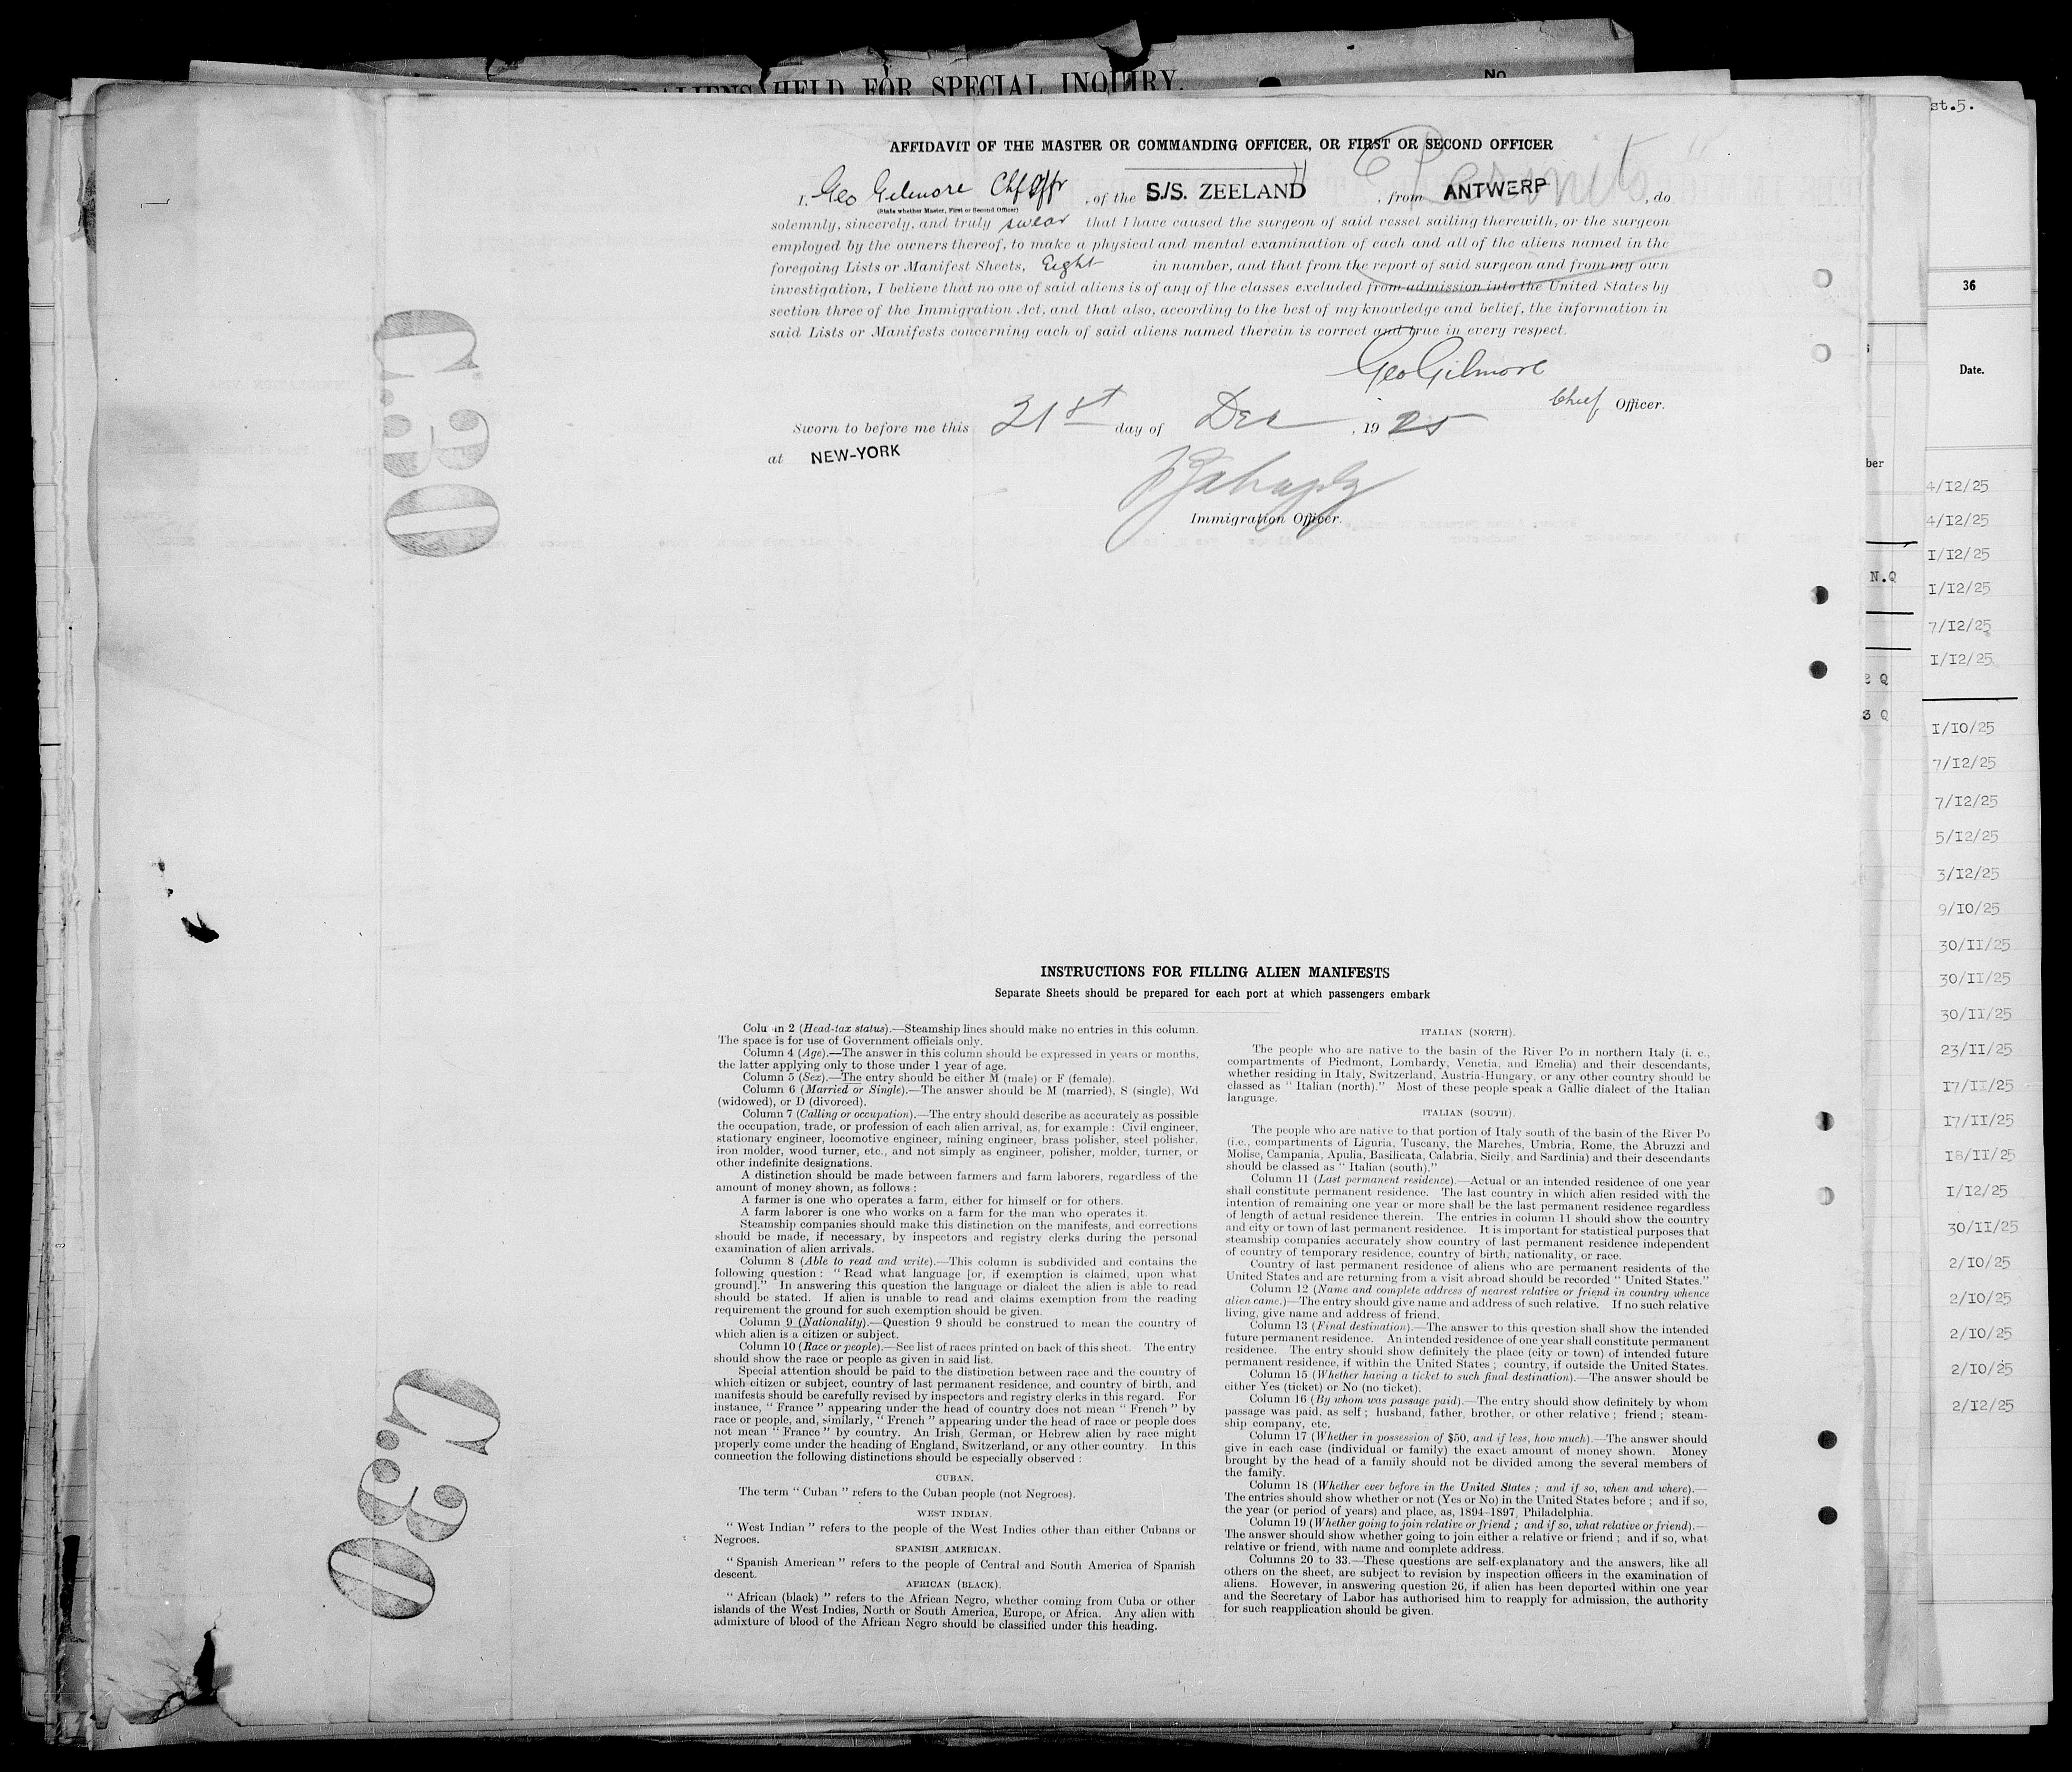 ALIENS HELD FOR SPECIAL INQUIRY.
No
st.5.
AFFIDAVIT OF THE MASTER OR COMMANDING OFFICER, OR FIRST OR SECOND OFFICER
Permits
I, Geo Gilmore Chf Offr, of the S./S. ZEELAND, from ANTWERP, do
(State whether Master, First or Second Officer)
solemnly, sincerely, and truly swear that I have caused the surgeon of said vessel sailing therewith, or the surgeon
employed by the owners thereof, to make a physical and mental examination of each and all of the aliens named in the
foregoing Lists or Manifest Sheets, Eight in number, and that from the report of said surgeon and from my own
investigation, I believe that no one of said aliens is of any of the classes excluded from admission into the United States by
section three of the Immigration Act, and that also, according to the best of my knowledge and belief, the information in
said Lists or Manifests concerning each of said aliens named therein is correct and true in every respect.
Geo Gilmore
Chief Officer.
Sworn to before me this 21st day of Dec, 1925
at NEW-YORK
Immigration Officer.
C.30
C30
INSTRUCTIONS FOR FILLING ALIEN MANIFESTS
Separate Sheets should be prepared for each port at which passengers embark
Colu n 2 (Head-tax status).—Steamship lines should make no entries in this column.
The space is for use of Government officials only.
Column 4 (Age).—The answer in this column should be expressed in years or months,
the latter applying only to those under 1 year of age.
Column 5 (Sex).—The entry should be either M (male) or F (female).
Column 6 (Married or Single).—The answer should be M (married), S (single), Wd
(widowed), or D (divorced).
Column 7 (Calling or occupation).—The entry should describe as accurately as possible
the occupation, trade, or profession of each alien arrival, as, for example : Civil engineer,
stationary engineer, locomotive engineer, mining engineer, brass polisher, steel polisher,
iron molder, wood turner, etc., and not simply as engineer, polisher, molder, turner, or
other indefinite designations.
A distinction should be made between farmers and farm laborers, regardless of the
amount of money shown, as follows :
A farmer is one who operates a farm, either for himself or for others.
A farm laborer is one who works on a farm for the man who operates it.
Steamship companies should make this distinction on the manifests, and corrections
should be made, if necessary, by inspectors and registry clerks during the personal
examination of alien arrivals.
Column 8 (Able to read and write).—This column is subdivided and contains the
following question : " Read what language [or, if exemption is claimed, upon what
ground]." In answering this question the language or dialect the alien is able to read
should be stated. If alien is unable to read and claims exemption from the reading
requirement the ground for such exemption should be given.
Column 9 (Nationality).—Question 9 should be construed to mean the country of
which alien is a citizen or subject.
Column 10 (Race or people).—See list of races printed on back of this sheet. The entry
should show the race or people as given in said list.
Special attention should be paid to the distinction between race and the country of
which citizen or subject, country of last permanent residence, and country of birth, and
manifests should be carefully revised by inspectors and registry clerks in this regard. For
instance, " France " appearing under the head of country does not mean " French " by
race or people, and, similarly, " French " appearing under the head of race or people does
not mean " France " by country. An Irish, German, or Hebrew alien by race might
properly come under the heading of England, Switzerland, or any other country. In this
connection the following distinctions should be especially observed :
CUBAN.
The term " Cuban " refers to the Cuban people (not Negroes).
WEST INDIAN.
" West Indian " refers to the people of the West Indies other than either Cubans or
Negroes.
SPANISH AMERICAN.
" Spanish American " refers to the people of Central and South America of Spanish
descent.
AFRICAN (BLACK).
" African (black) " refers to the African Negro, whether coming from Cuba or other
islands of the West Indies, North or South America, Europe, or Africa. Any alien with
admixture of blood of the African Negro should be classified under this heading.
ITALIAN (NORTH).
The people who are native to the basin of the River Po in northern Italy (i. e.,
compartments of Piedmont, Lombardy, Venetia, and Emelia) and their descendants,
whether residing in Italy, Switzerland, Austria-Hungary, or any other country should be
classed as " Italian (north)." Most of these people speak a Gallic dialect of the Italian
language.
ITALIAN (SOUTH).
The people who are native to that portion of Italy south of the basin of the River Po
(i.e., compartments of Liguria, Tuscany, the Marches, Umbria, Rome, the Abruzzi and
Molise, Campania, Apulia, Basilicata, Calabria, Sicily, and Sardinia) and their descendants
should be classed as " Italian (south)."
Column 11 (Last permanent residence).—Actual or an intended residence of one year
shall constitute permanent residence. The last country in which alien resided with the
intention of remaining one year or more shall be the last permanent residence regardless
of length of actual residence therein. The entries in column 11 should show the country
and city or town of last permanent residence. It is important for statistical purposes that
steamship companies accurately show country of last permanent residence independent
of country of temporary residence, country of birth, nationality, or race.
Country of last permanent residence of aliens who are permanent residents of the
United States and are returning from a visit abroad should be recorded " United States."
Column 12 (Name and complete address of nearest relative or friend in country whence
alien came.)—The entry should give name and address of such relative. If no such relative
living, give name and address of friend.
Column 13 (Final destination).—The answer to this question shall show the intended
future permanent residence. An intended residence of one year shall constitute permanent
residence. The entry should show definitely the place (city or town) of intended future
permanent residence, if within the United States ; country, if outside the United States.
Column 15 (Whether having a ticket to such final destination).—The answer should be
either Yes (ticket) or No (no ticket).
Column 16 (By whom was passage paid).—The entry should show definitely by whom
passage was paid, as self ; husband, father, brother, or other relative ; friend ; steam-
ship company, etc.
Column 17 (Whether in possession of $50, and if less, how much).—The answer should
give in each case (individual or family) the exact amount of money shown. Money
brought by the head of a family should not be divided among the several members of
the family.
Column 18 (Whether ever before in the United States ; and if so, when and where).—
The entries should show whether or not (Yes or No) in the United States before ; and if so,
the year (or period of years) and place, as, 1894-1897, Philadelphia.
Column 19 (Whether going to join relative or friend ; and if so, what relative or friend).—
The answer should show whether going to join either a relative or friend ; and if so, what
relative or friend, with name and complete address.
Columns 20 to 33.—These questions are self-explanatory and the answers, like all
others on the sheet, are subject to revision by inspection officers in the examination of
aliens. However, in answering question 26, if alien has been deported within one year
and the Secretary of Labor has authorised him to reapply for admission, the authority
for such reapplication should be given.
ber
N.Q
2 Q
3 Q
36
Date.
4/12/25
4/12/25
1/12/25
1/12/25
7/12/25
1/12/25
1/10/25
7/12/25
7/12/25
5/12/25
3/12/25
9/10/25
30/11/25
30/11/25
30/11/25
23/11/25
17/11/25
17/11/25
18/11/25
1/12/25
30/11/25
2/10/25
2/10/25
2/10/25
2/10/25
2/12/25